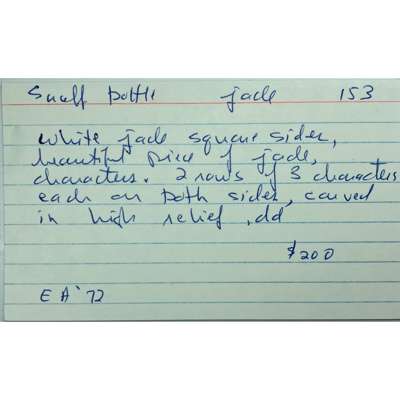 Snuff bottle jade 153
White jade square sides,
beautiful piece of jade,
characters. 2 rows of 3 characters
each on both sides, carved
in high relief, old
$200
E A '72